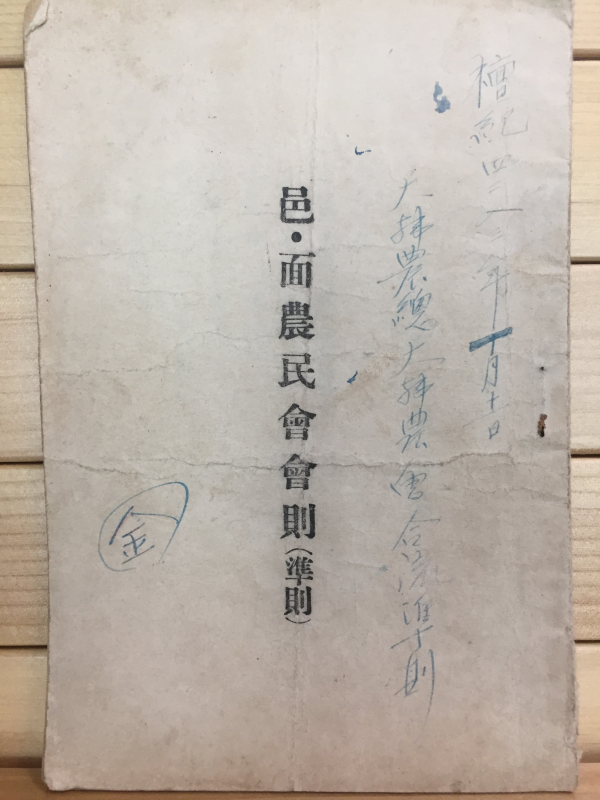 檀紀四二八三年十月十二日
大韓農總大韓農會合流準則
邑・面農民會會則(準則)
金